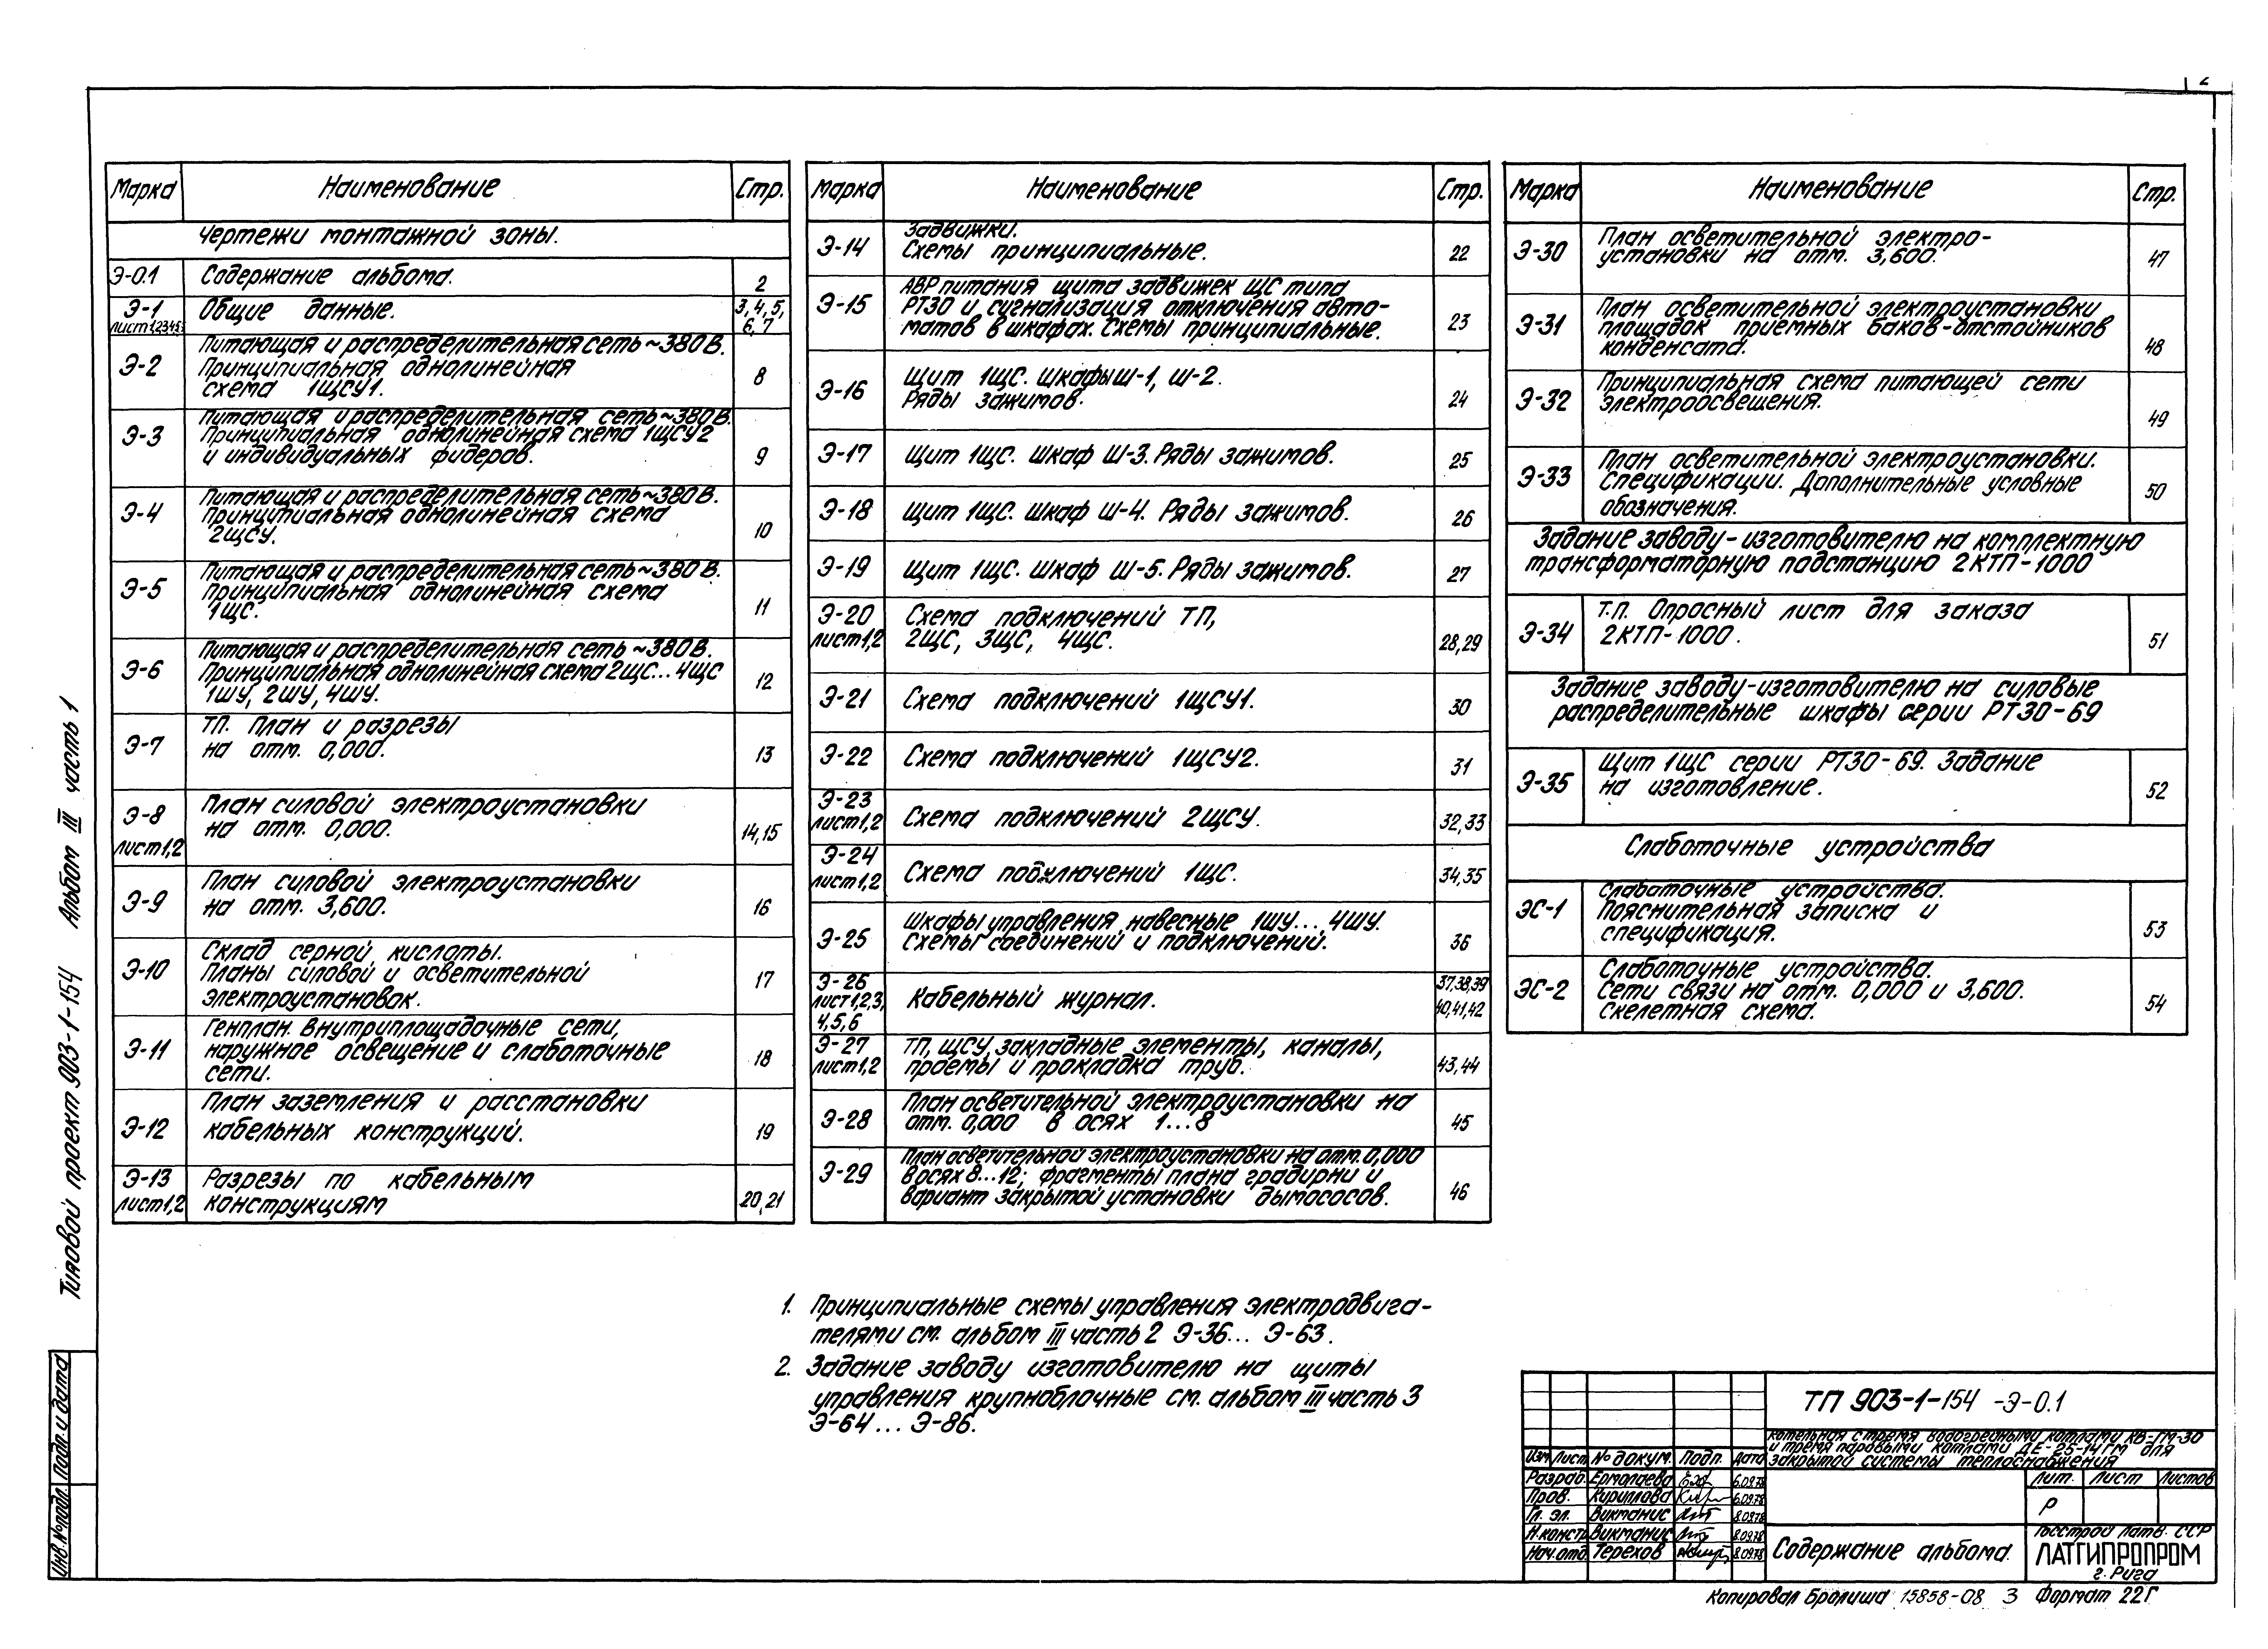 2
Типовой проект 903-1-154 Альбом III часть 1
Марка Наименование Стр.
Чертежи монтажной зоны.
Э-0.1 Содержание альбома. 2
Э-1 Общие данные. 3,4,5,
лист1,2,3,4,5 6,7
Питающая и распределительная сеть ~380В.
Э-2 Принципиальная однолинейная 8
схема 1ЩСУ1.
Питающая и распределительная сеть ~380В.
Э-3 Принципиальная однолинейная схема 1ЩСУ2
и индивидуальных фидеров. 9
Питающая и распределительная сеть ~380В.
Э-4 Принципиальная однолинейная схема
2ЩСУ. 10
Питающая и распределительная сеть ~380В.
Э-5 Принципиальная однолинейная схема
1ЩС. 11
Питающая и распределительная сеть ~380В.
Э-6 Принципиальная однолинейная схема 2ЩС...4ЩС 12
1ШУ, 2ШУ, 4ШУ.
ТП. План и разрезы
Э-7 на отм. 0,000. 13
План силовой электроустановки
Э-8 на отм. 0,000. 14,15
лист1,2
План силовой электроустановки
Э-9 на отм. 3,600. 16
Склад серной кислоты.
Э-10 Планы силовой и осветительной 17
электроустановок.
Генплан. Внутриплощадочные сети,
Э-11 наружное освещение и слаботочные 18
сети.
План заземления и расстановки
Э-12 кабельных конструкций. 19
Э-13 Разрезы по кабельным
лист1,2 конструкциям 20,21
Марка Наименование Стр.
Задвижки.
Э-14 Схемы принципиальные. 22
АВР питания щита задвижек ЩС типа
Э-15 РТ30 и сигнализация отключения авто-
матов в шкафах. Схемы принципиальные. 23
Щит 1ЩС. Шкафы Ш-1, Ш-2.
Э-16 Ряды зажимов. 24
Э-17 Щит 1ЩС. Шкаф Ш-3. Ряды зажимов. 25
Э-18 Щит 1ЩС. Шкаф Ш-4. Ряды зажимов. 26
Э-19 Щит 1ЩС. Шкаф Ш-5. Ряды зажимов. 27
Э-20 Схема подключений ТП,
лист1,2 2ЩС, 3ЩС, 4ЩС. 28,29
Э-21 Схема подключений 1ЩСУ1. 30
Э-22 Схема подключений 1ЩСУ2. 31
Э-23
лист1,2 Схема подключений 2ЩСУ. 32,33
Э-24
лист1,2 Схема подключений 1ЩС. 34,35
Шкафы управления навесные 1ШУ...4ШУ.
Э-25 Схемы соединений и подключений. 36
Э-26 37,38,39
лист1,2,3, Кабельный журнал. 40,41,42
4,5,6
Э-27 ТП, ЩСУ, закладные элементы, каналы,
лист1,2 проемы и прокладка труб. 43,44
План осветительной электроустановки на
Э-28 отм. 0,000 в осях 1...8 45
План осветительной электроустановки на отм. 0,000
Э-29 в осях 8...12; фрагменты плана градирни и
вариант закрытой установки дымососов. 46
Марка Наименование Стр.
План осветительной электро-
Э-30 установки на отм. 3,600. 47
План осветительной электроустановки
Э-31 площадок приемных баков-отстойников
конденсата. 48
Принципиальная схема питающей сети
Э-32 электроосвещения. 49
План осветительной электроустановки.
Э-33 Спецификации. Дополнительные условные 50
обозначения.
Задание заводу-изготовителю на комплектную
трансформаторную подстанцию 2КТП-1000
Т.П. Опросный лист для заказа
Э-34 2КТП-1000. 51
Задание заводу-изготовителю на силовые
распределительные шкафы серии РТ30-69
Щит 1ЩС серии РТ30-69. Задание
Э-35 на изготовление. 52
Слаботочные устройства
Слаботочные устройства.
ЭС-1 Пояснительная записка и
спецификация. 53
Слаботочные устройства.
ЭС-2 Сети связи на отм. 0,000 и 3,600. 54
Скелетная схема.
1. Принципиальные схемы управления электродвига-
телями см. альбом III часть 2 Э-36... Э-63.
2. Задание заводу изготовителю на щиты
управления крупноблочные см. альбом III часть 3
Э-64... Э-86.
Инв.№подл. Подп. и дата
ТП 903-1-154 -Э-0.1
Котельная с тремя водогрейными котлами КВ-ГМ-30
и тремя паровыми котлами ДЕ-25-14ГМ для
закрытой системы теплоснабжения
Изм Лист № докум. Подп. Дата
Разраб. Ермолаева 6.09.78
Пров. Кириллова 6.09.78
Гл. эл. Викманис 8.09.78
Н.констр. Викманис 8.09.78
Нач.отд. Терехов 8.09.78
Лит. Лист Листов
Р
Содержание альбома.
Госстрой Латв. ССР
ЛАТГИПРОПРОМ
г. Рига
Копировал Бролиша 15858-08 3 Формат 22Г